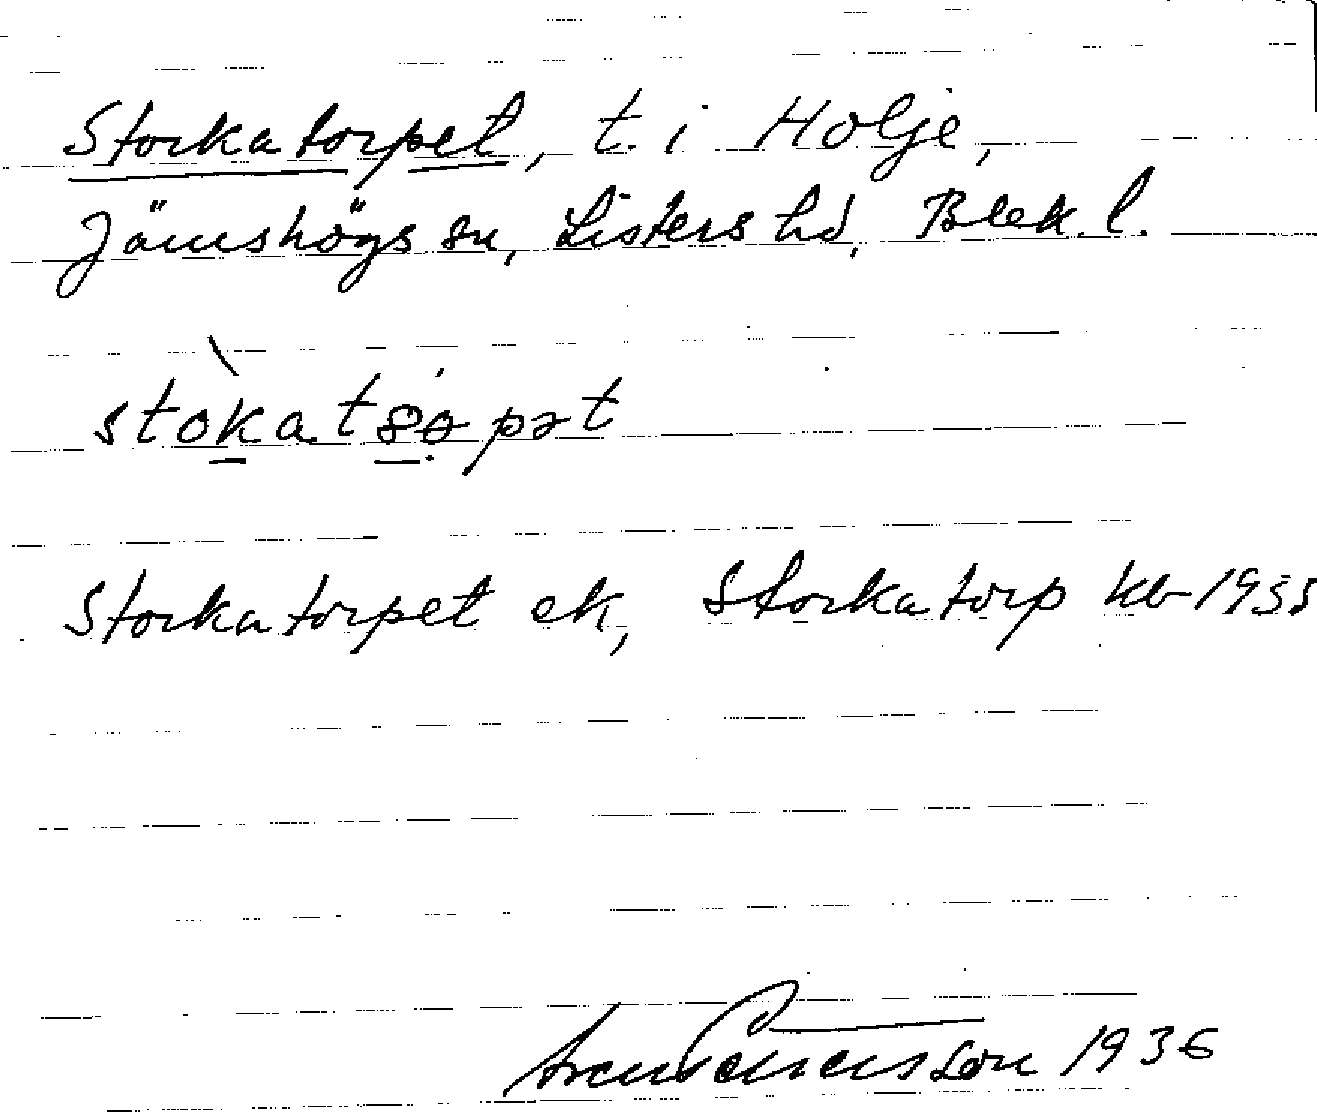 Storkatorpet, t. i Holje,
Jämshögs sn, Listers hd, Blek. l.
stòkatȯpət
Storkatorpet ek, Storkatorp kb 1935
1936